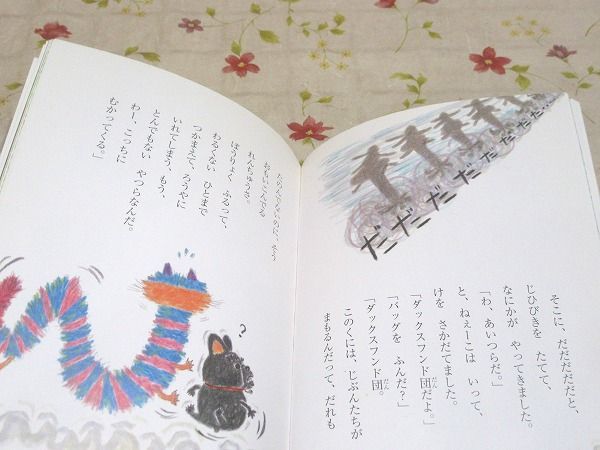 だだだだだだだだ…
そこに、だだだだだと、
じひびきを たてて、
なにかが やってきました。
「わ、あいつらだ。」
と、ねぇーこは いって、
けを さかだてました。
「ダックスフンド団だよ。」
「バッグを ふんだ？」
「ダックスフンド団。
このくには、じぶんたちが
まもるんだって、だれも
おもいこんでる
れんちゅうさ。
ぼうりょく ふるって、
わるくない ひとまで
つかまえて、ろうやに
いれてしまう、もう、
とんでもない やつらなんだ。
わー、こっちに
むかってくる。」
?